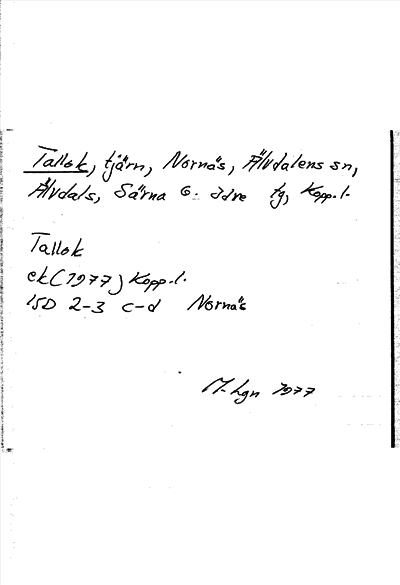 Tallok, tjärn, Nornäs, Älvdalens sn,
Älvdals, Särna o. Idre tg, Kopp.l.
Tallok
ek (1977) Kopp.l.
15D 2-3 c-d Nornäs
M-hgn 1977